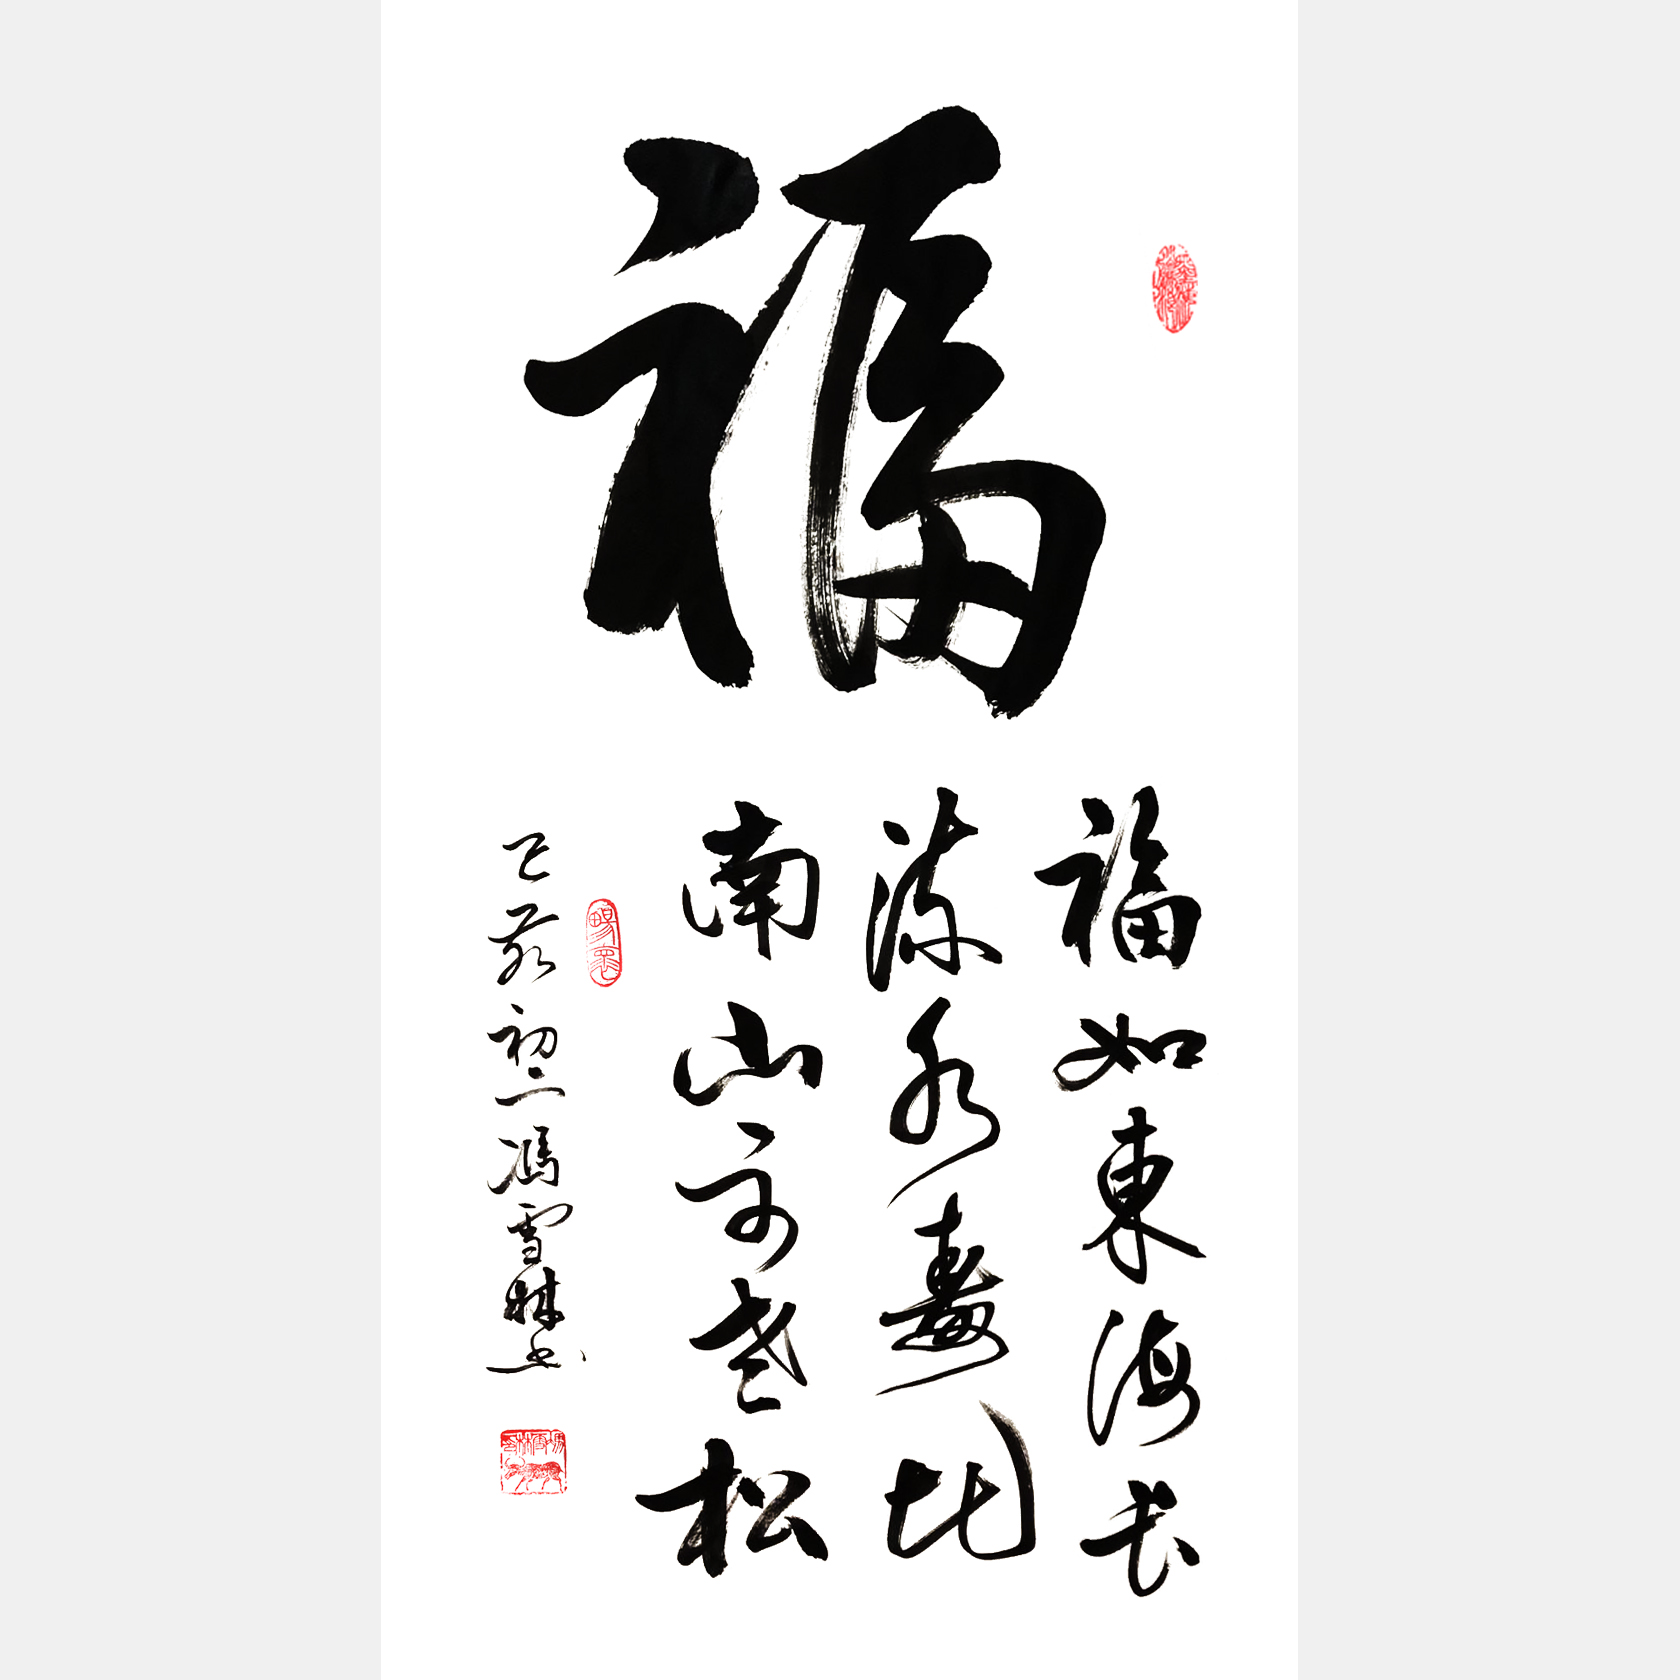 福
福如東海長
流水壽比
南山不老松
己亥初二馮雪林書